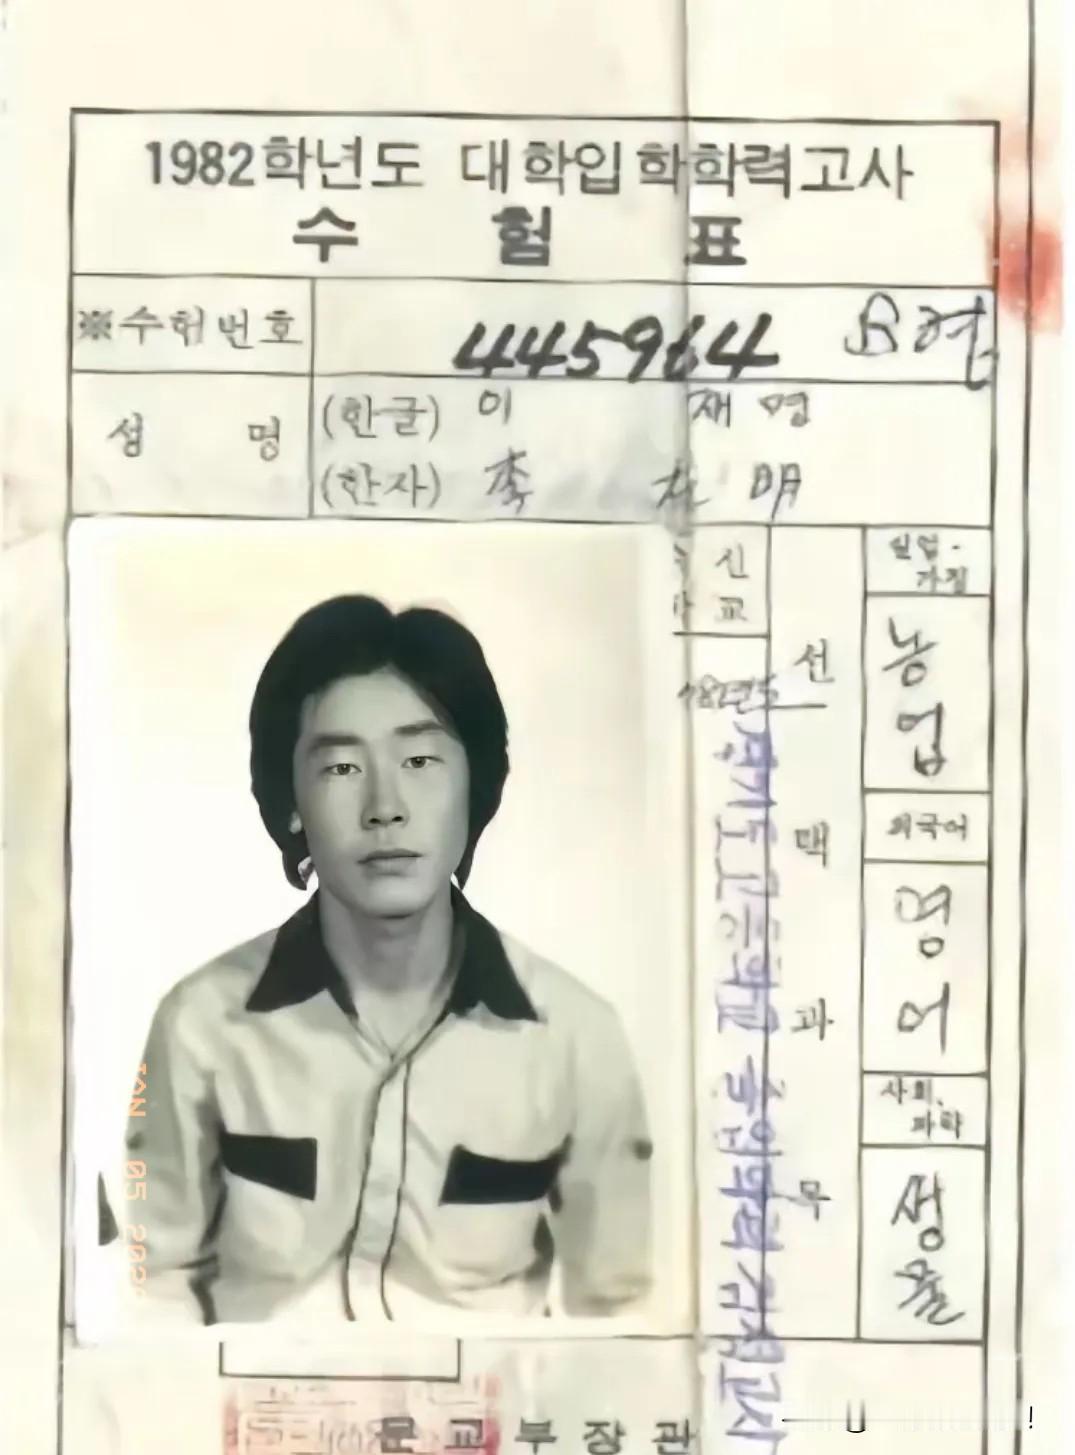 1982학년도 대학입학학력고사
수 험 표
※수험번호 445964 B형
성 명 (한글) 이 재명
(한자) 李 在 明
신
교
선
택
과
목
실업·
가정
농
업
외국어
영
어
사회,
과학
생
물
고등학교 졸업학력 검정고시
JAN 05 202
문 교 부 장 관